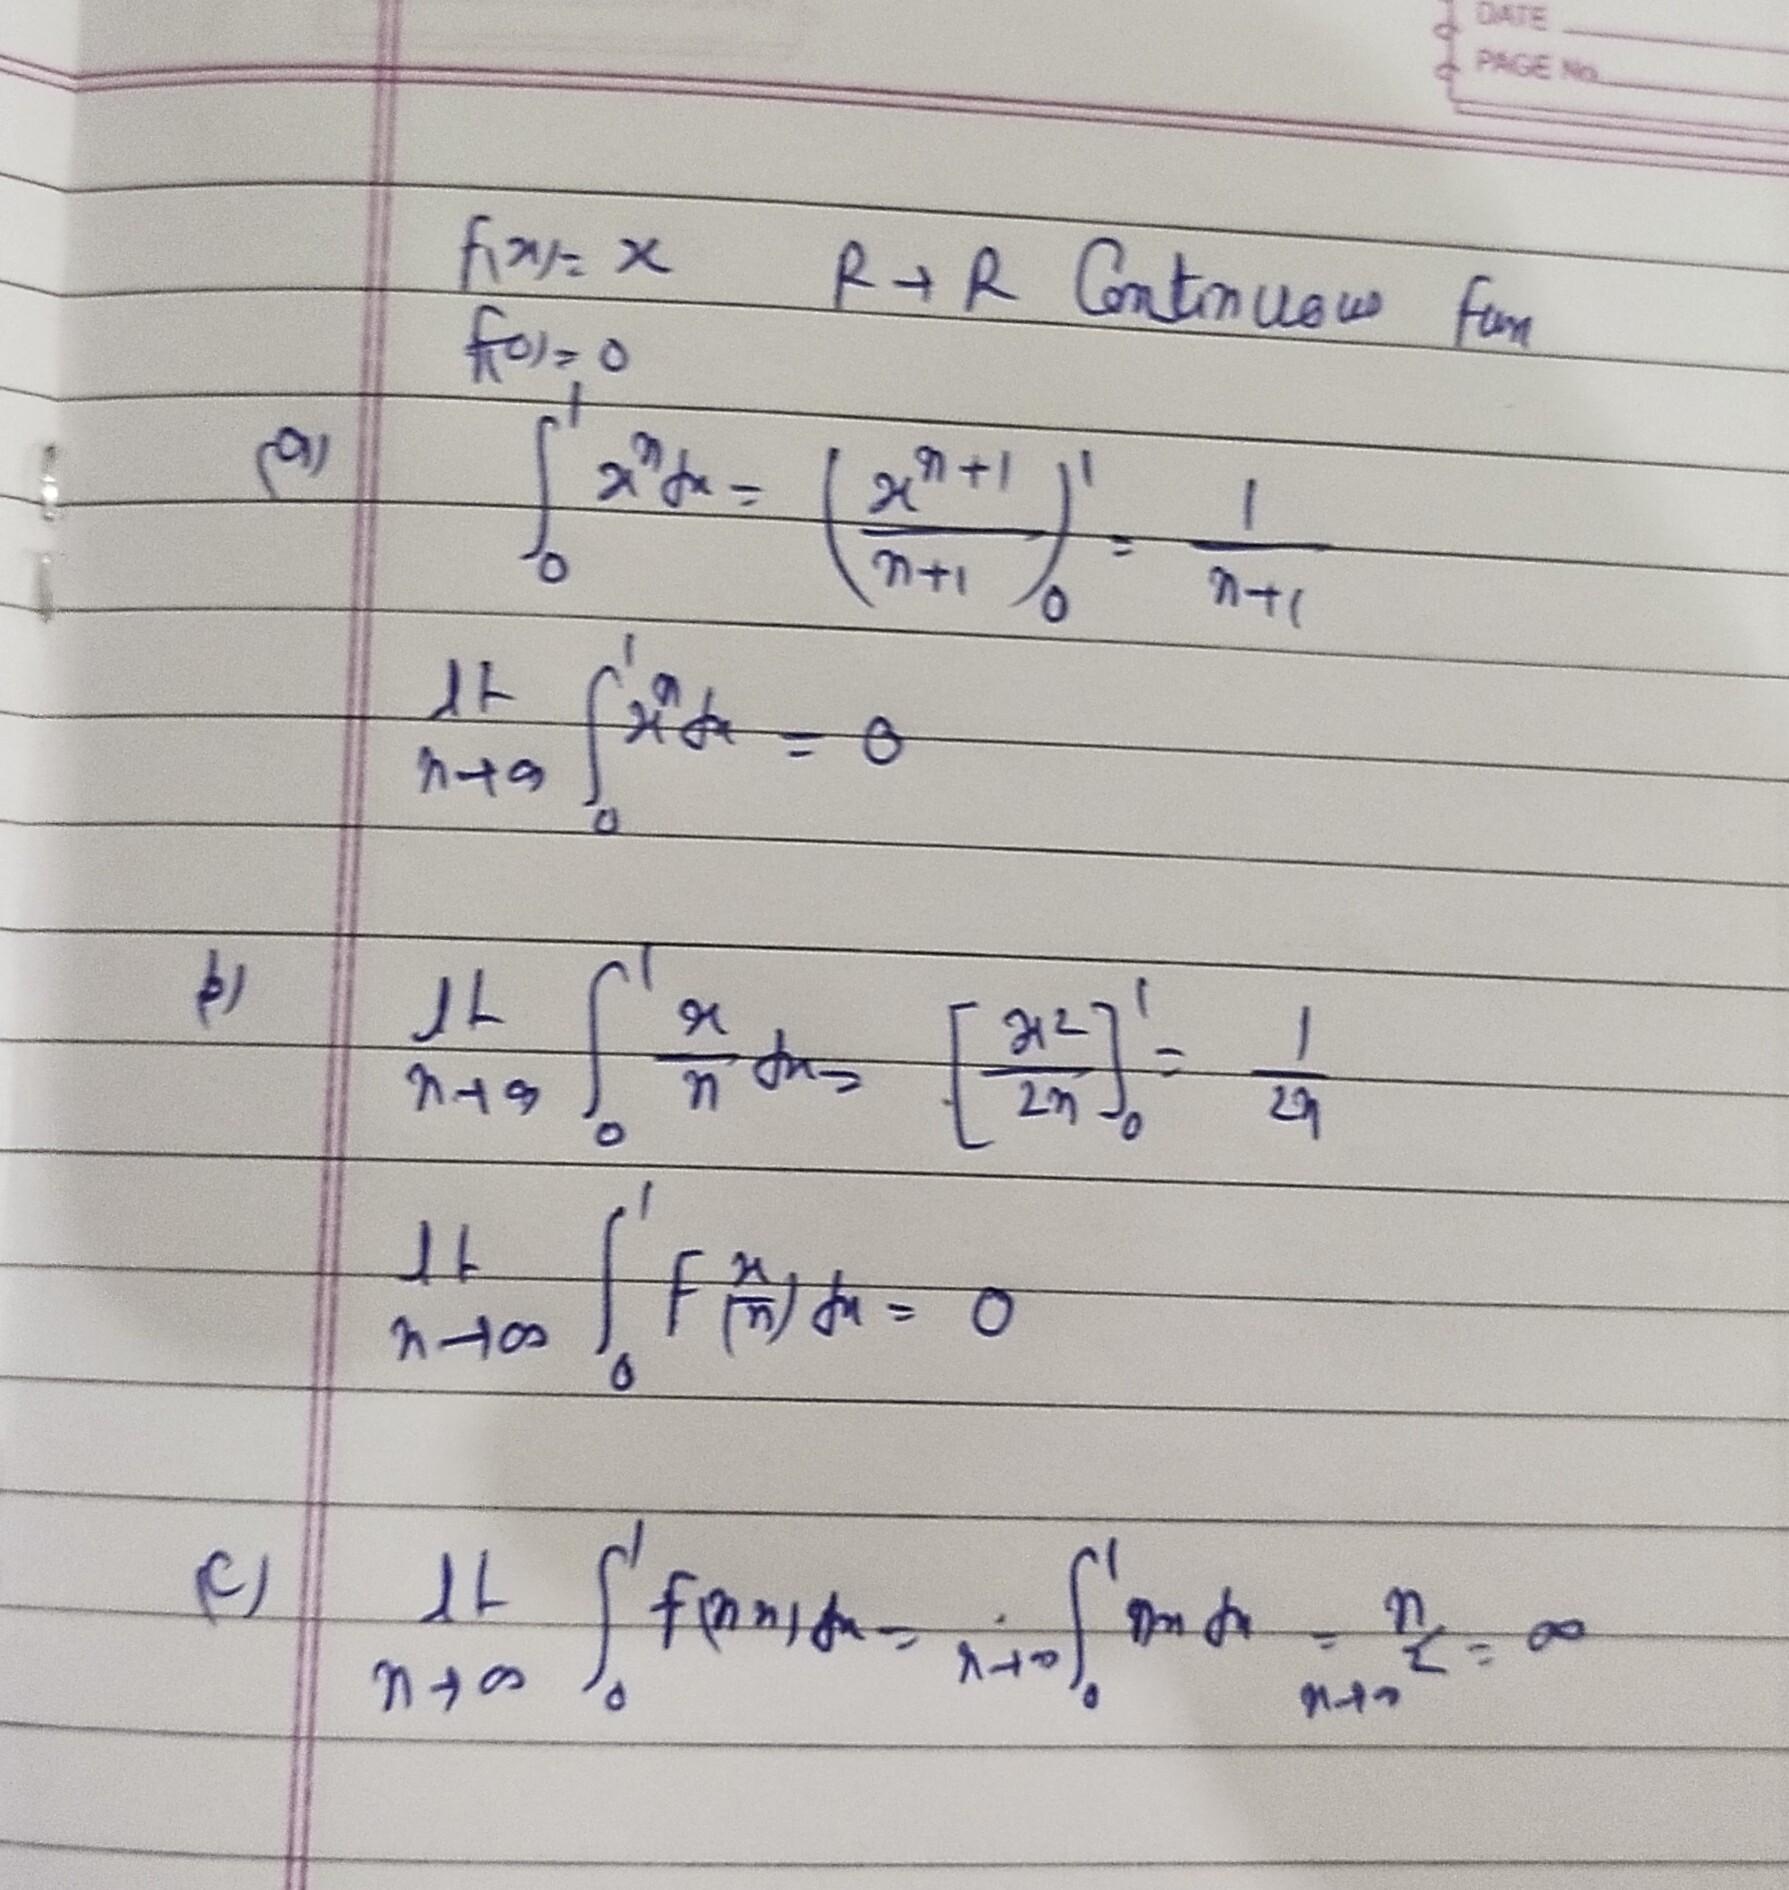 DATE
PAGE No.
f(x)= x R→R Continuous fun
f(0)=0
(a) ∫₀¹ xⁿdx = (xⁿ⁺¹/n+1)₀¹ = 1/n+1
lt n→∞ ∫₀¹ xⁿdx = 0
b) lt n→∞ ∫₀¹ x/n dx = [x²/2n]₀¹ = 1/2n
lt n→∞ ∫₀¹ F(x/n) dx = 0
(c) lt n→∞ ∫₀¹ f(nx) dx = n→∞ ∫₀¹ nx dx = n→∞ n/2 = ∞